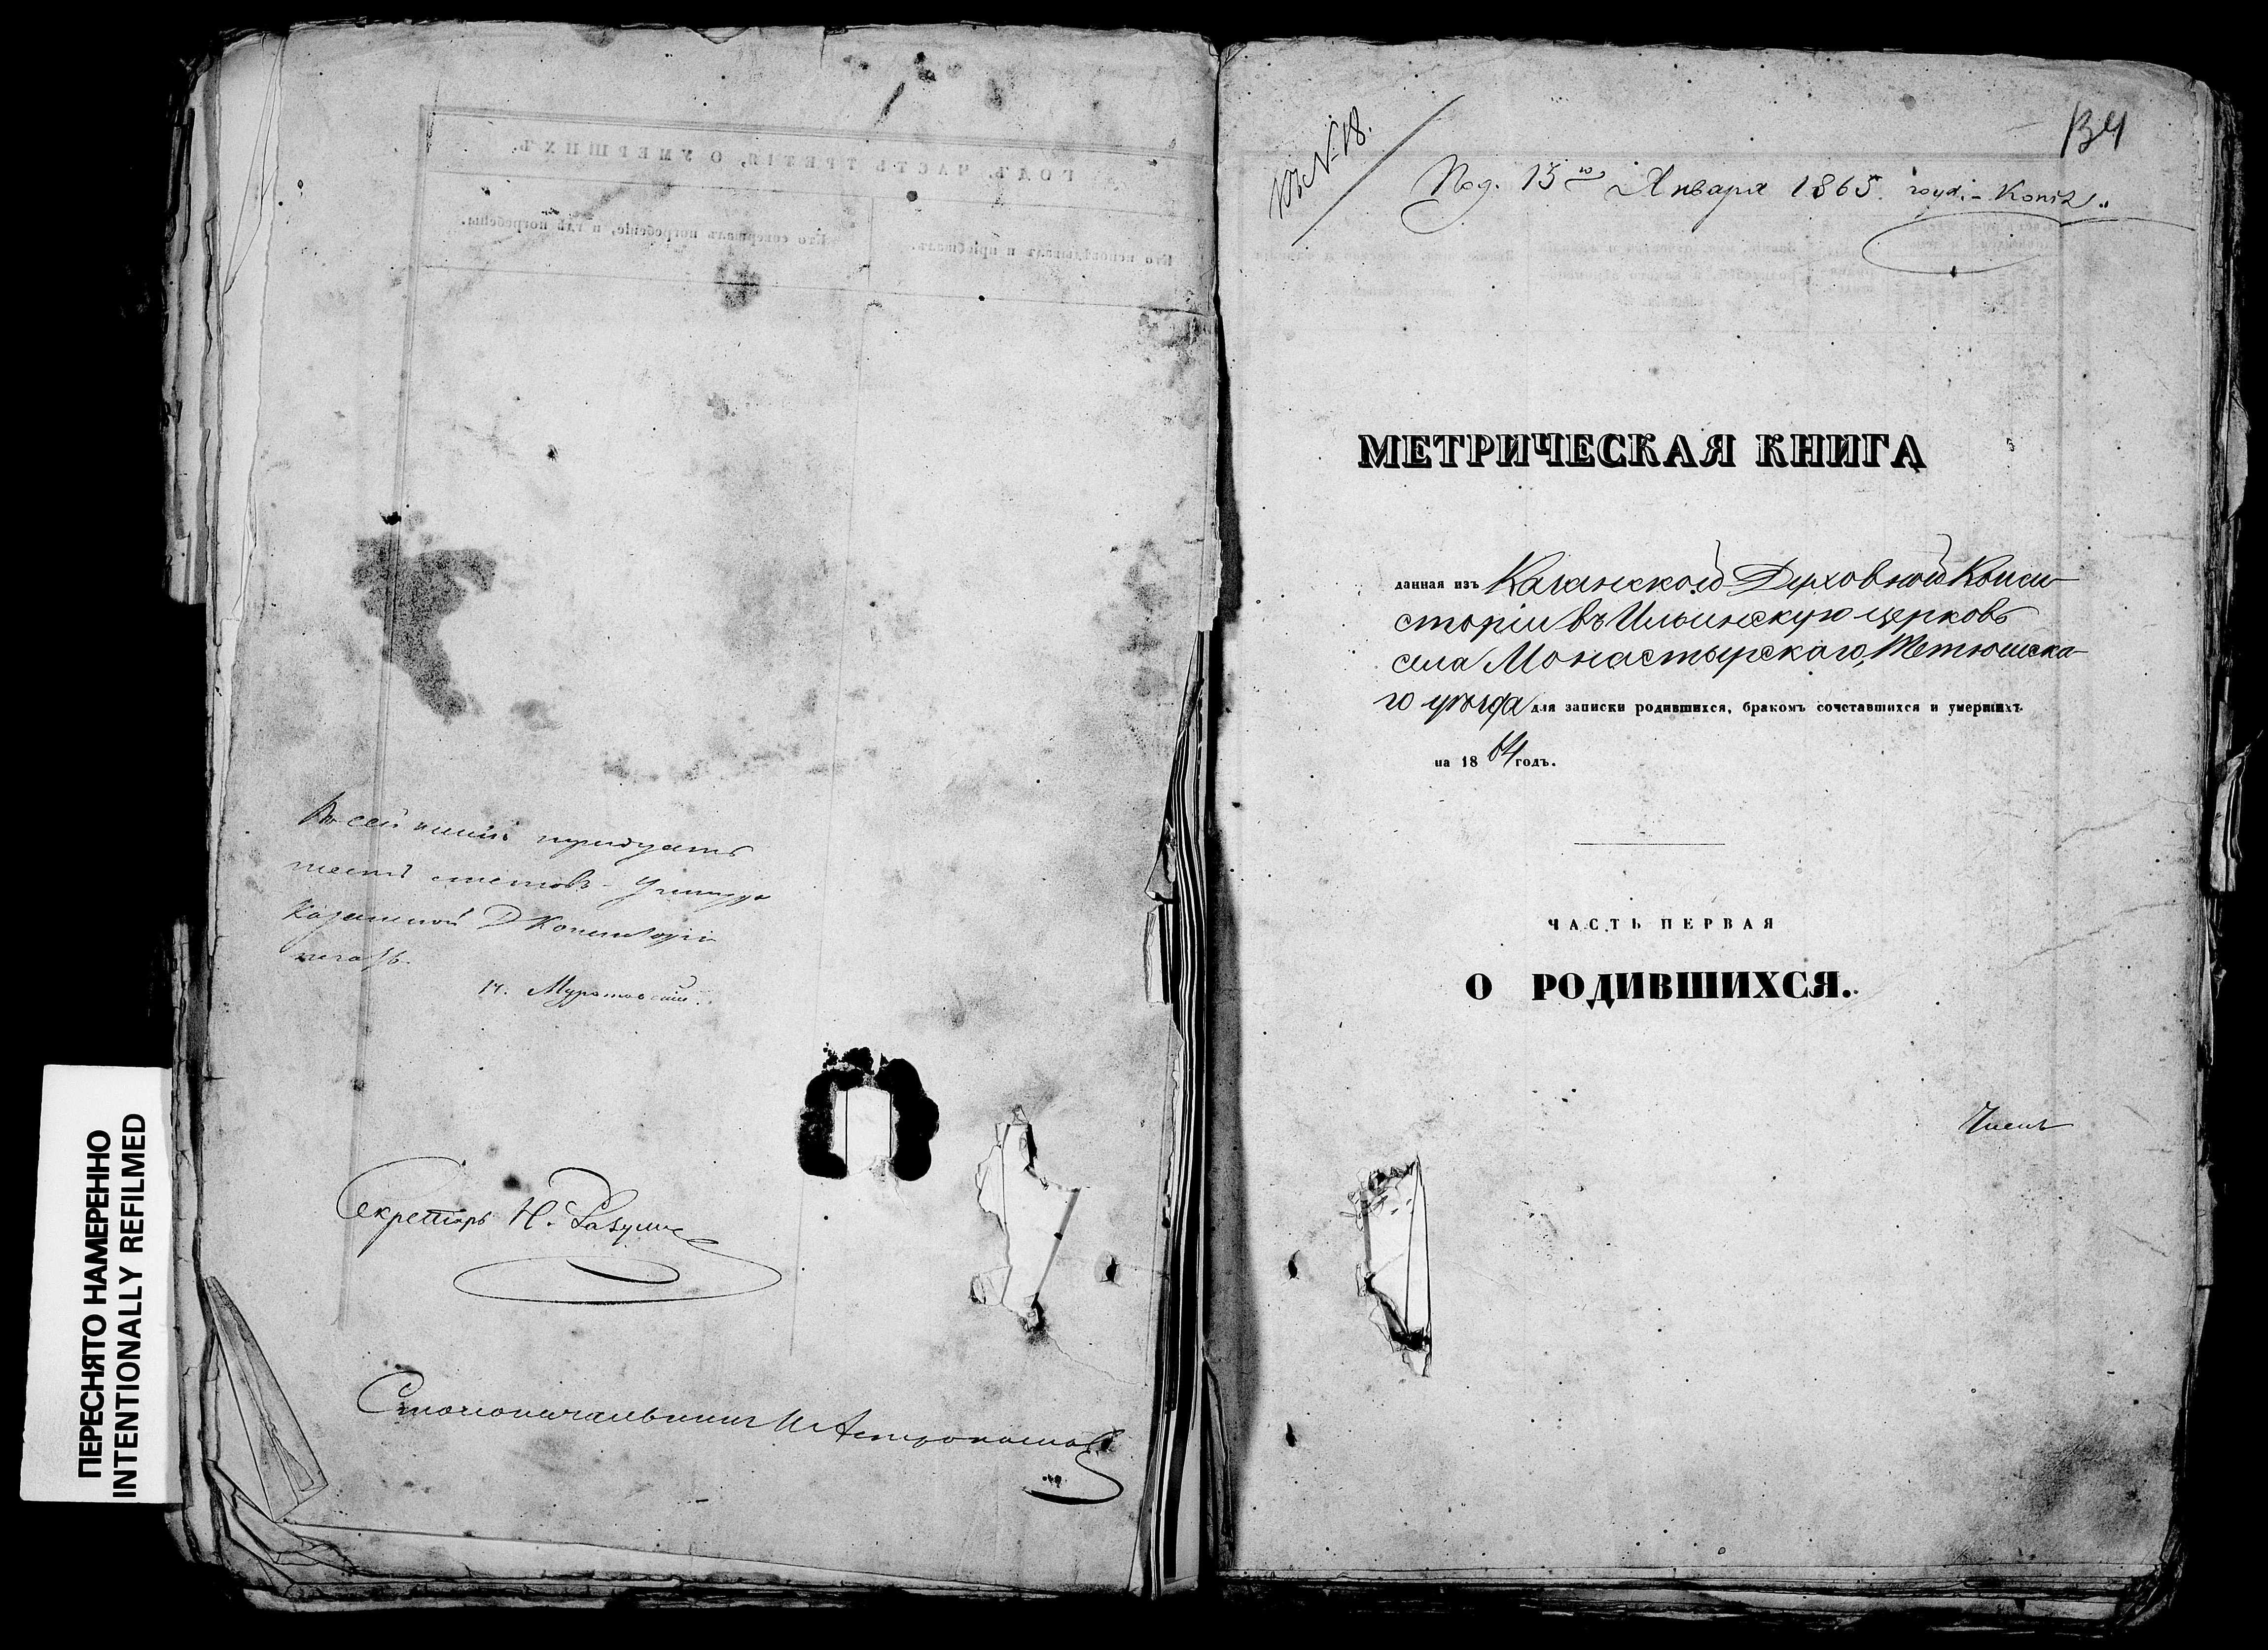 Въ сей книгѣ тридцать
шесть листовъ
Казанской Д Консисторіи
печать.
Секретарь Н. Разумо
Столоначальникъ
ПЕРЕСНЯТО НАМЕРЕННО
INTENTIONALLY REFILMED
ГОДЪ, ЧАСТЬ ТРЕТІЯ, О УМЕРШИХЪ.
Кто исповѣдывалъ и пріобщалъ.
Кто совершалъ погребеніе, и гдѣ погребены.
№ 18.
134
Под. 15го Января 1865 года. - Копія
МЕТРИЧЕСКАЯ КНИГА
данная изъ Казанской Духовной Конси-
сторіи въ Ильинскую церковь
села Монастырскаго, Тетюшска-
го уѣзда для записки родившихся, бракомъ сочетавшихся и умершихъ
на 1864 годъ.
ЧАСТЬ ПЕРВАЯ
О РОДИВШИХСЯ.